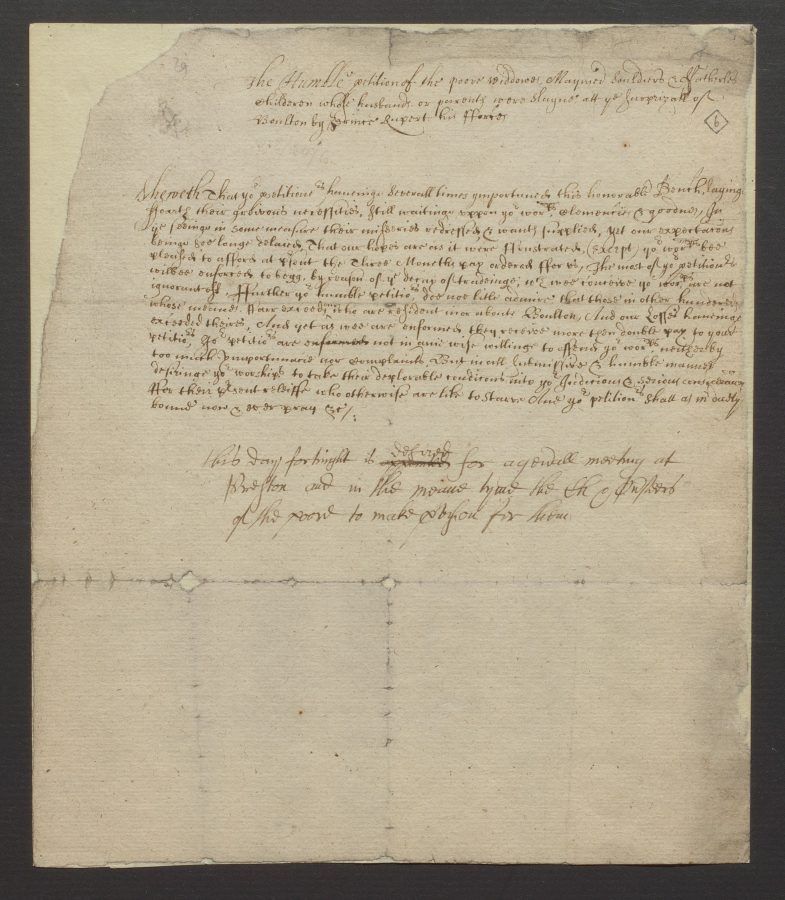 The Humble petition of the poore widdowes Maymed souldiers & Fatherles
Children whose husbands or parents were slayne att ye surprizall of
Boulton by Prince Rupert his fforces
6
Sheweth That yor petitionrs haveinge severall times importuned this honorable Bench, laying
fforth their grevous necessities, still waitinge uppon yor worps clemencie & goodnes, In
ye seeinge in some measure their miseries redressed & wants supplied, yet our expectacons
beinge soe longe delaied, That our hopes are as it were ffrustrated, (except) yor worps bee
pleased to afford at psent the three Moneths pay ordered ffor us, The most of yor petitionrs
wilbee enforced to begg, by reason of ye decay of tradeinge, wch wee conceive yor worps are not
ignorant of, ffurther yor humble petitiors doe not litle admire that those in other hundreds
whose meanes ffarr exceed, who are resident nor aboute Boulton, And our Losses haveinge
exceeded theirs, And yet as wee are enformed they receive more then double pay to your
petitirs, Yor petitirs are enformed not in anie wise willinge to offend yor worps, neither by
too much Importunacie nor Complaints, But in all submissive & humble manner
desiringe yor worships to take their deplorable condicons into yor Judicious & serious consideracon
ffor their psent releiffe who otherwise are like to starve And yor petitionrs shall as in duety
bound now & ever pray &c/.
deferred
this day fortnight is for a genrall meeting at
Preston and in the meane tyme the Ch: Ovrseers
of the poore to make pvision for them